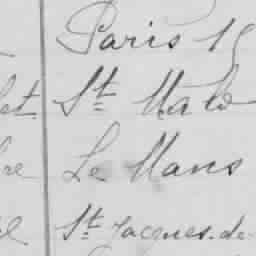 Paris 15
et St Malo
re Le Mans
St Jacques-de-